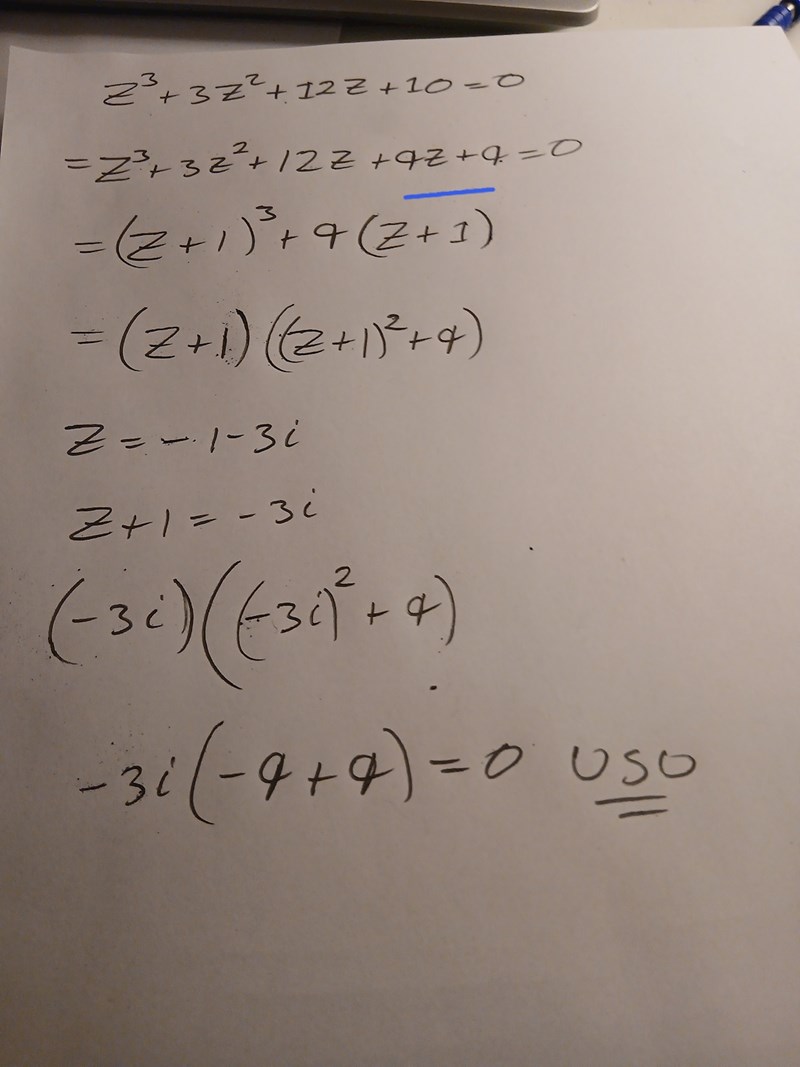 z³+3z²+12z+10=0
=z³+3z²+12z+9z+9=0
=(z+1)³+9(z+1)
=(z+1)((z+1)²+9)
z=-1-3i
z+1=-3i
(-3i)((-3i)²+9)
-3i(-9+9)=0 USO